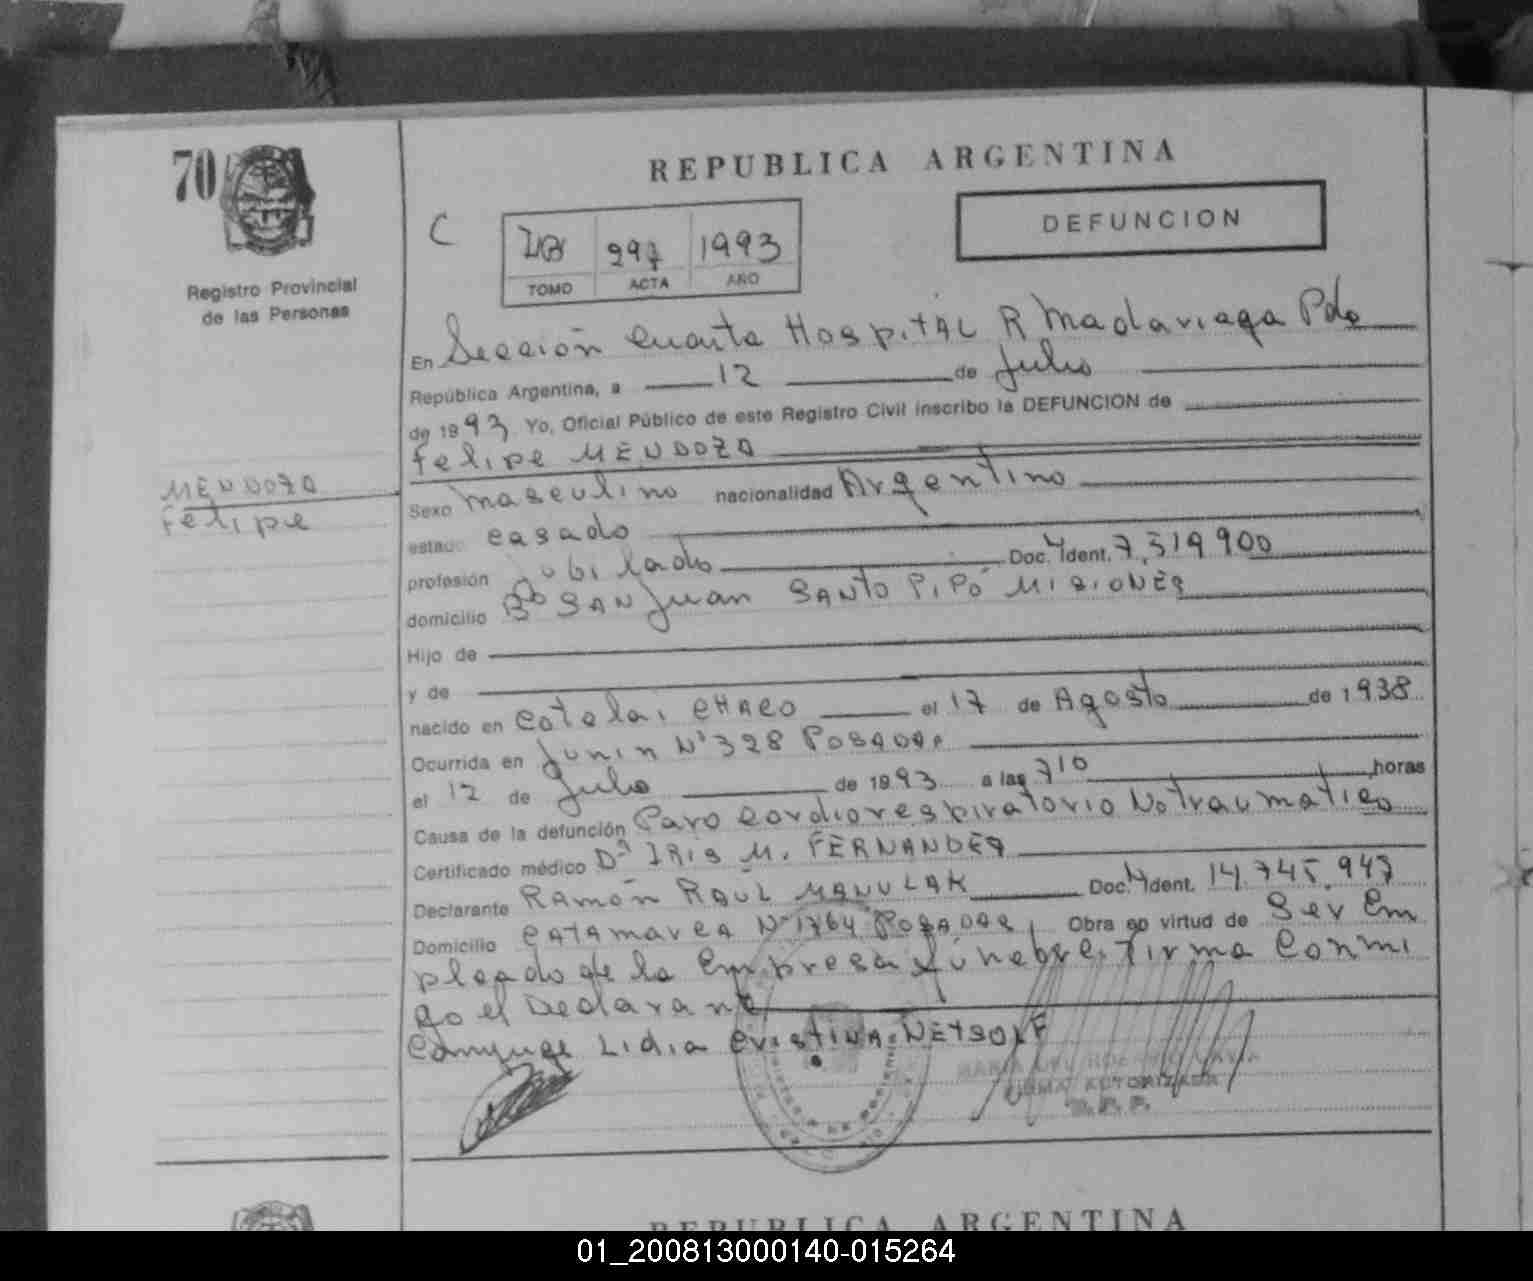 70
REPUBLICA ARGENTINA
DEFUNCION
C
297 1993
TOMO ACTA AÑO
Registro Provincial
de las Personas
En Sección Cuarta Hospital R Madariaga Pdas
República Argentina, a 12 de Julio
de 1993 Yo, Oficial Público de este Registro Civil inscribo la DEFUNCION de
Felipe MENDOZA
MENDOZA
Felipe
Sexo masculino nacionalidad Argentino
estado casado
profesión Jubilado Doc. Ident. 7.519.900
domicilio Bo SAN Juan SANTO PIPÓ MISIONES
Hijo de
y de
nacido en Cotelai CHACO el 17 de Agosto de 1938
Ocurrida en Junin N° 328 POSADAS
el 12 de Julio de 1993 a las 710 horas
Causa de la defunción Paro Cardiorespiratorio No traumatico
Certificado médico Dra IRIS M. FERNANDEZ
Declarante RAMÓN RAÚL MANULAK Doc. Ident. 14.745.947
Domicilio CATAMARCA N° 1764 POSADAS Obra en virtud de Ser Em
pleado de la Empresa fúnebre. Firma Conmi
go el Declarante
Conyuge Lidia Cristina NETSOLF
FIRMA AUTORIZADA
R. P. P.
REPUBLICA ARGENTINA
01_200813000140-015264